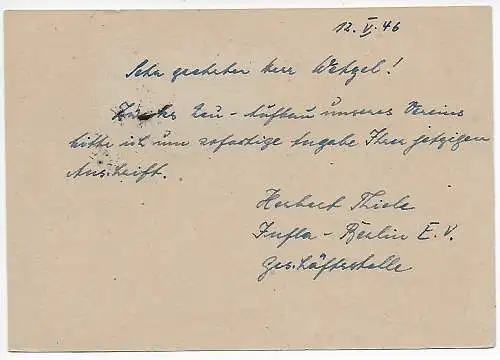 12. V. 46
Sehr geehrter Herr Wetzel!
Für den Neu-Aufbau unseres Vereins
bitte ich um sofortige Angabe Ihrer jetzigen
Anschrift.
Herbert Thiele
Infla-Berlin E.V.
Geschäftsstelle